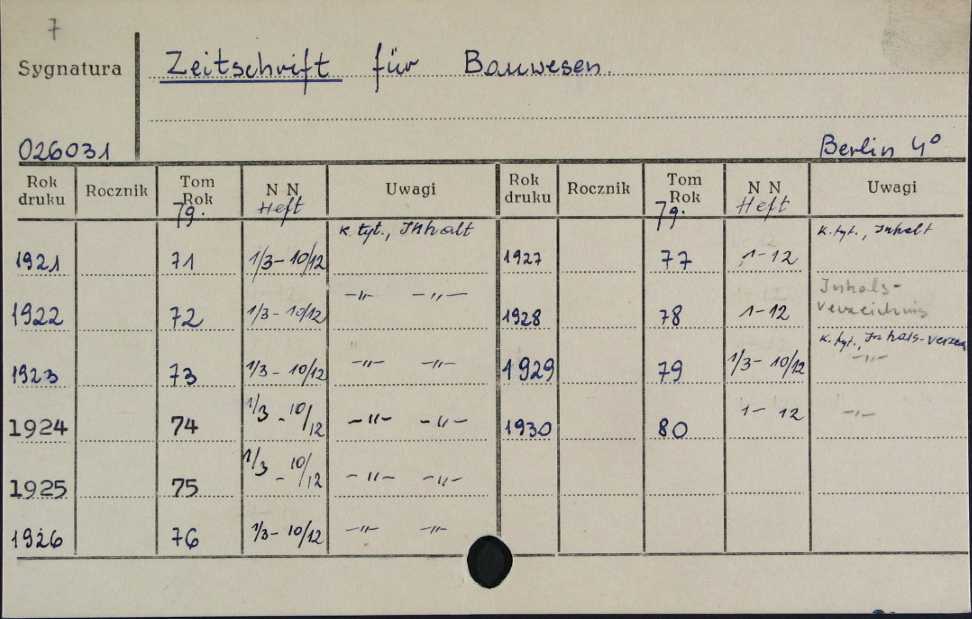 7
Sygnatura
Zeitschrift für Bauwesen.
026031
Berlin 4°
Rok druku Rocznik Tom Rok N N Uwagi Rok druku Rocznik Tom Rok N N Uwagi
Jg. Heft Jg. Heft
1921 71 1/3-10/12 k. tyt., Inhalt
1922 72 1/3-10/12 -"- -"-
1923 73 1/3-10/12 -"- -"-
1924 74 1/3-10/12 -"- -"-
1925 75 1/3-10/12 -"- -"-
1926 76 1/3-10/12 -"- -"-
1927 77 1-12 k. tyt., Inhalt
1928 78 1-12 Inhals-
Verzeichnis
1929 79 1/3-10/12 k. tyt., Inhals-Verzei
-"-
1930 80 1-12 -"-